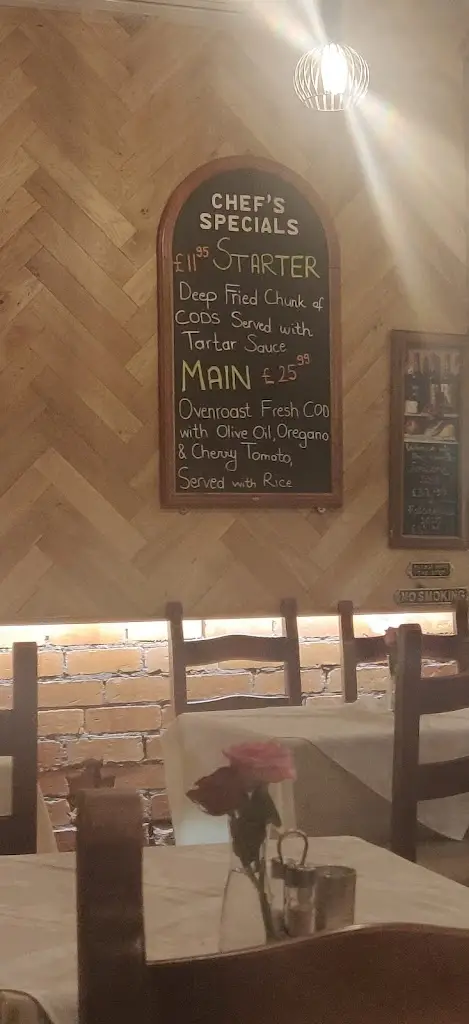 CHEF'S
SPECIALS
£11.95 STARTER
Deep Fried Chunk of
CODS Served with
Tartar Sauce
MAIN £25.99
Ovenroast Fresh COD
with Olive Oil, Oregano
& Cherry Tomato,
Served with Rice
NO SMOKING